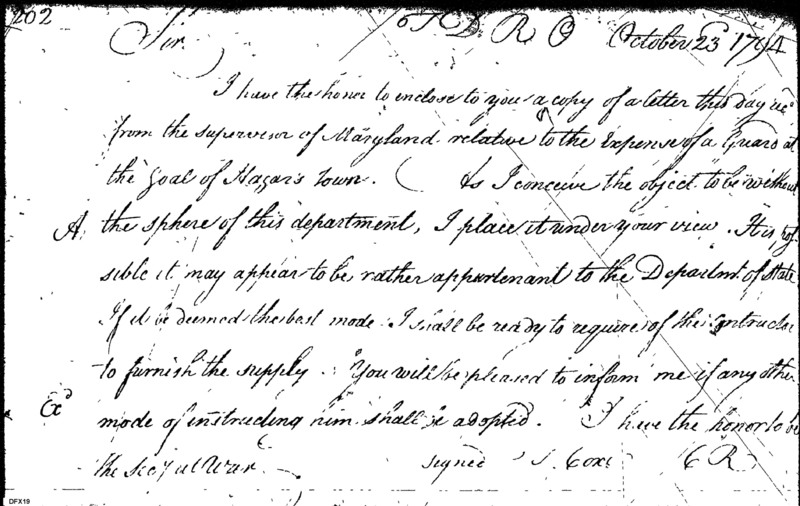 202
T D R O October 23 1794
Sir
I have the honor to enclose to you a copy of a letter this day rec
from the supervisor of Maryland relative to the Expense of a Guard at
the Goal of Hagars Town. As I conceive the object to be without
A the sphere of this department, I place it under your view. It is, pos
sible it may appear to be rather appurtenant to the Departmt. of State
If it be deemed the best mode I shall be ready to require of the Contractor
to furnish the supply. You will be pleased to inform me if any other
Exd mode of instructing him shall be adopted. I have the honor to be
the Secy at War signed T. Coxe C R
DFX19